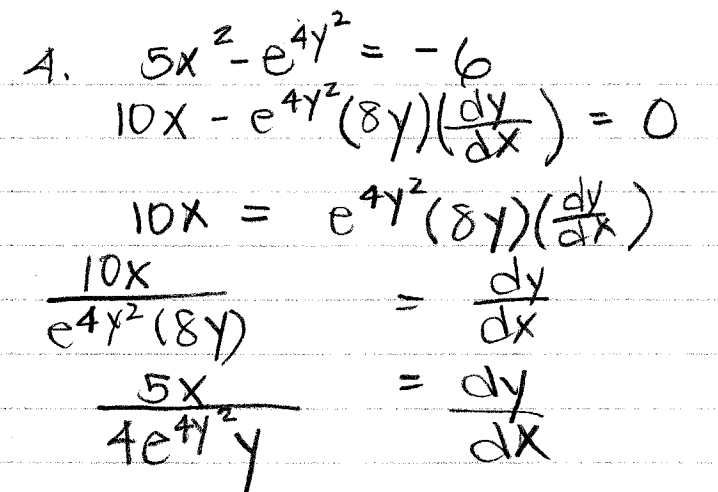 A. 5x² - e^{4y²} = -6
10x - e^{4y²}(8y)(dy/dx) = 0
10x = e^{4y²}(8y)(dy/dx)
10x/(e^{4y²}(8y)) = dy/dx
5x/(4e^{4y²}y) = dy/dx